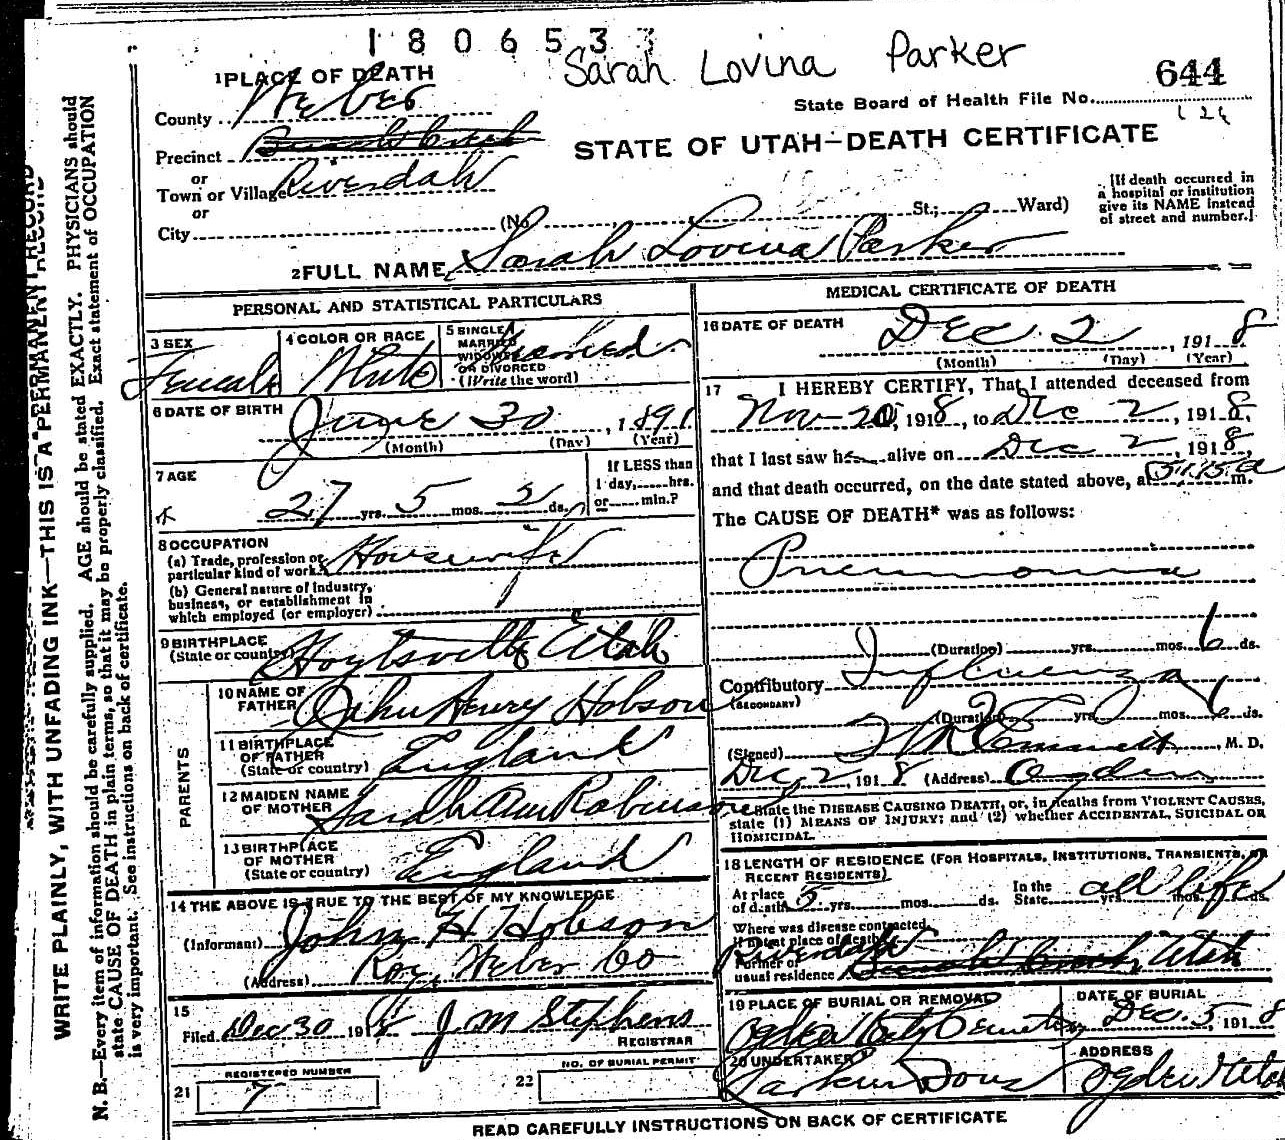 180653
Sarah Lovina Parker
644
1 PLACE OF DEATH
State Board of Health File No.
County Weber
Precinct
STATE OF UTAH—DEATH CERTIFICATE
or
Town or Village Riverdale
or
City
(No. St.; Ward)
[If death occurred in
a hospital or institution
give its NAME instead
of street and number.]
2 FULL NAME Sarah Lovina Parker
PERSONAL AND STATISTICAL PARTICULARS
3 SEX
Female
4 COLOR OR RACE
White
5 SINGLE
MARRIED
WIDOWED
OR DIVORCED
(Write the word)
Married
6 DATE OF BIRTH
June 30, 1891
(Month) (Day) (Year)
7 AGE
27 yrs. 5 mos. 2 ds.
If LESS than
1 day, hrs.
or min.?
8 OCCUPATION
(a) Trade, profession or
particular kind of work Housewife
(b) General nature of industry,
business, or establishment in
which employed (or employer)
9 BIRTHPLACE
(State or country) Hoytsville Utah
PARENTS
10 NAME OF
FATHER John Henry Hobson
11 BIRTHPLACE
OF FATHER
(State or country) England
12 MAIDEN NAME
OF MOTHER Sarah Ann Robinson
13 BIRTHPLACE
OF MOTHER
(State or country) England
14 THE ABOVE IS TRUE TO THE BEST OF MY KNOWLEDGE
(Informant) John H Hobson
(Address) Roy, Weber Co
15
Filed Dec 30 1918 J. M Stephens
REGISTRAR
REGISTERED NUMBER
21 7
NO. OF BURIAL PERMIT
22
MEDICAL CERTIFICATE OF DEATH
16 DATE OF DEATH
Dec 2, 1918
(Month) (Day) (Year)
17 I HEREBY CERTIFY, That I attended deceased from
Nov 20, 1918, to Dec 2, 1918,
that I last saw her alive on Dec 2, 1918,
and that death occurred, on the date stated above, at 5:15 a m.
The CAUSE OF DEATH* was as follows:
Pneumonia
(Duration) yrs. mos. 6 ds.
Contributory Influenza
(SECONDARY)
(Duration) yrs. mos. 6 ds.
(Signed) Emmett, M. D.
Dec 2, 1918 (Address) Ogden
State the DISEASE CAUSING DEATH, or, in deaths from VIOLENT CAUSES,
state (1) MEANS OF INJURY; and (2) whether ACCIDENTAL, SUICIDAL OR
HOMICIDAL.
18 LENGTH OF RESIDENCE (FOR HOSPITALS, INSTITUTIONS, TRANSIENTS, OR
RECENT RESIDENTS)
At place
of death 5 yrs. mos. ds.
In the
State all life yrs. mos. ds.
Where was disease contracted,
if not at place of death?
Riverdale
Former or
usual residence Utah
19 PLACE OF BURIAL OR REMOVAL
Ogden City Cemetery
DATE OF BURIAL
Dec. 5, 1918
20 UNDERTAKER
Larkin Sons
ADDRESS
Ogden Utah
READ CAREFULLY INSTRUCTIONS ON BACK OF CERTIFICATE
WRITE PLAINLY, WITH UNFADING INK—THIS IS A PERMANENT RECORD
N. B.—Every item of information should be carefully supplied. AGE should be stated EXACTLY. PHYSICIANS should
state CAUSE OF DEATH in plain terms, so that it may be properly classified. Exact statement of OCCUPATION
is very important. See instructions on back of certificate.